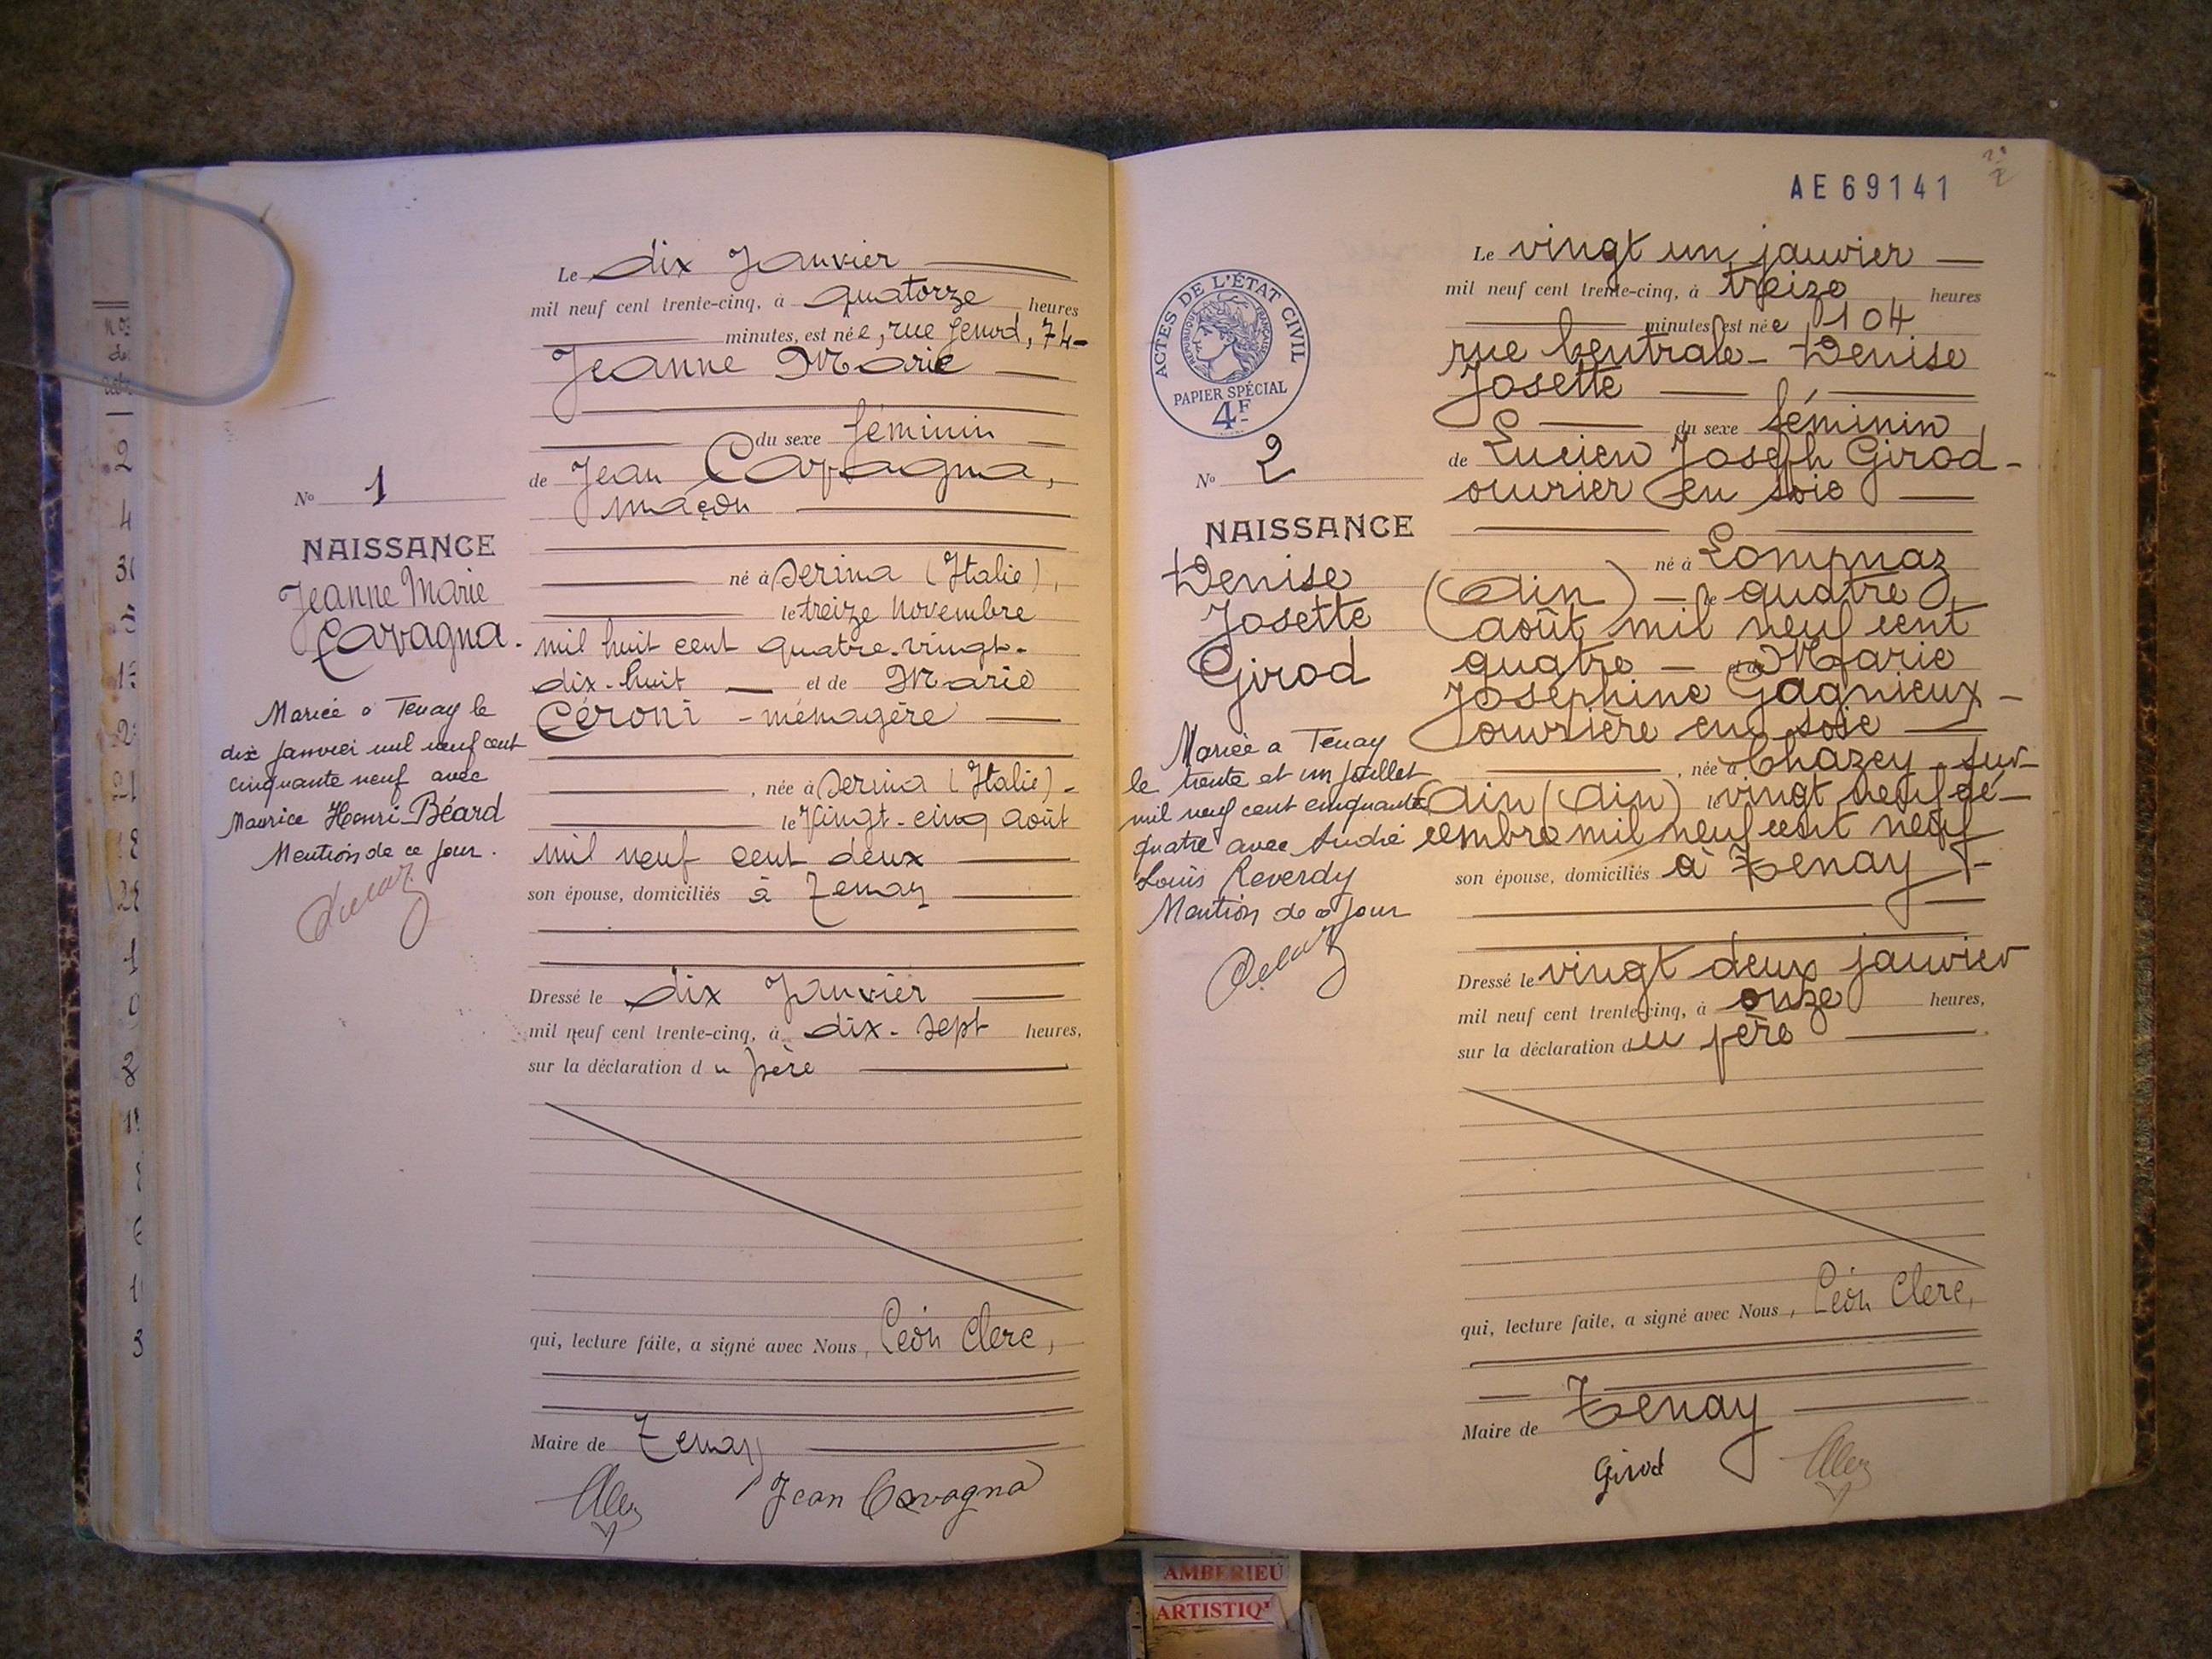 Le dix Janvier
mil neuf cent trente-cinq, à quatorze heures
minutes, est née, rue Genod, 74-
Jeanne Marie
du sexe féminin
de Jean Cavagna,
maçon
né à Serina (Italie),
le treize Novembre
mil huit cent quatre-vingt-
dix-huit et de Marie
Céroni - ménagère
, née à Serina (Italie) -
le Vingt-cinq août
mil neuf cent deux
son épouse, domiciliés à Tenay
Dressé le dix Janvier
mil neuf cent trente-cinq, à dix-sept heures,
sur la déclaration du père
qui, lecture faite, a signé avec Nous, Léon Clerc,
Maire de Tenay
Jean Cavagna
No 1
NAISSANCE
Jeanne Marie
Cavagna.
Mariée a Tenay le
dix janvier mil neuf cent
cinquante neuf avec
Maurice Henri Béard
Mention de ce jour.
AE69141
Le vingt un janvier
mil neuf cent trente-cinq, à treize heures
minutes, est née 104
rue Centrale - Denise
Josette
du sexe féminin
de Lucien Joseph Girod -
ouvrier en soie
né à Lompnaz
(Ain) - le quatre
août mil neuf cent
quatre - et de Marie
Joséphine Gagnieux -
ouvrière en soie
, née à Chazey-sur
Ain (Ain) le vingt neuf dé-
cembre mil neuf cent neuf
son épouse, domiciliés à Tenay
Dressé le vingt deux janvier
mil neuf cent trente-cinq, à onze heures,
sur la déclaration du père
qui, lecture faite, a signé avec Nous, Léon Clerc,
Maire de Tenay
Girod
ACTES DE L'ÉTAT CIVIL
RÉPUBLIQUE FRANÇAISE
PAPIER SPÉCIAL
4F
No 2
NAISSANCE
Denise
Josette
Girod
Mariée a Tenay
le trente et un juillet
mil neuf cent cinquante
quatre avec André
Louis Reverdy
Mention de ce jour
AMBERIEU
ARTISTIQ